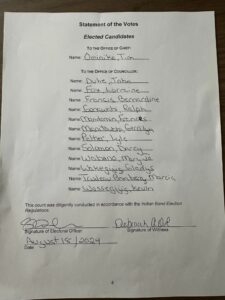 Statement of the Votes
Elected Candidates
TO THE OFFICE OF CHIEF:
Name: Ominika, Tim
TO THE OFFICE OF COUNCILLOR:
Name: Dube, Jake
Name: Fox, Lorraine
Name: Francis, Bernardine
Name: Corbiere, Ralph
Name: Mandamin, Frances
Name: Manitowabi, Geraldyn
Name: Peltier, Lyle
Name: Solomon, Darcy
Name: Wabano,
Name: Wakegijig, Gladys
Name: Trudeau, Bomberry, Marcia
Name: Wassegijig, Kevin
This count was diligently conducted in accordance with the Indian Band Election
Regulations.
Signature of Electoral Officer
Signature of Witness
August 18/2024
Date